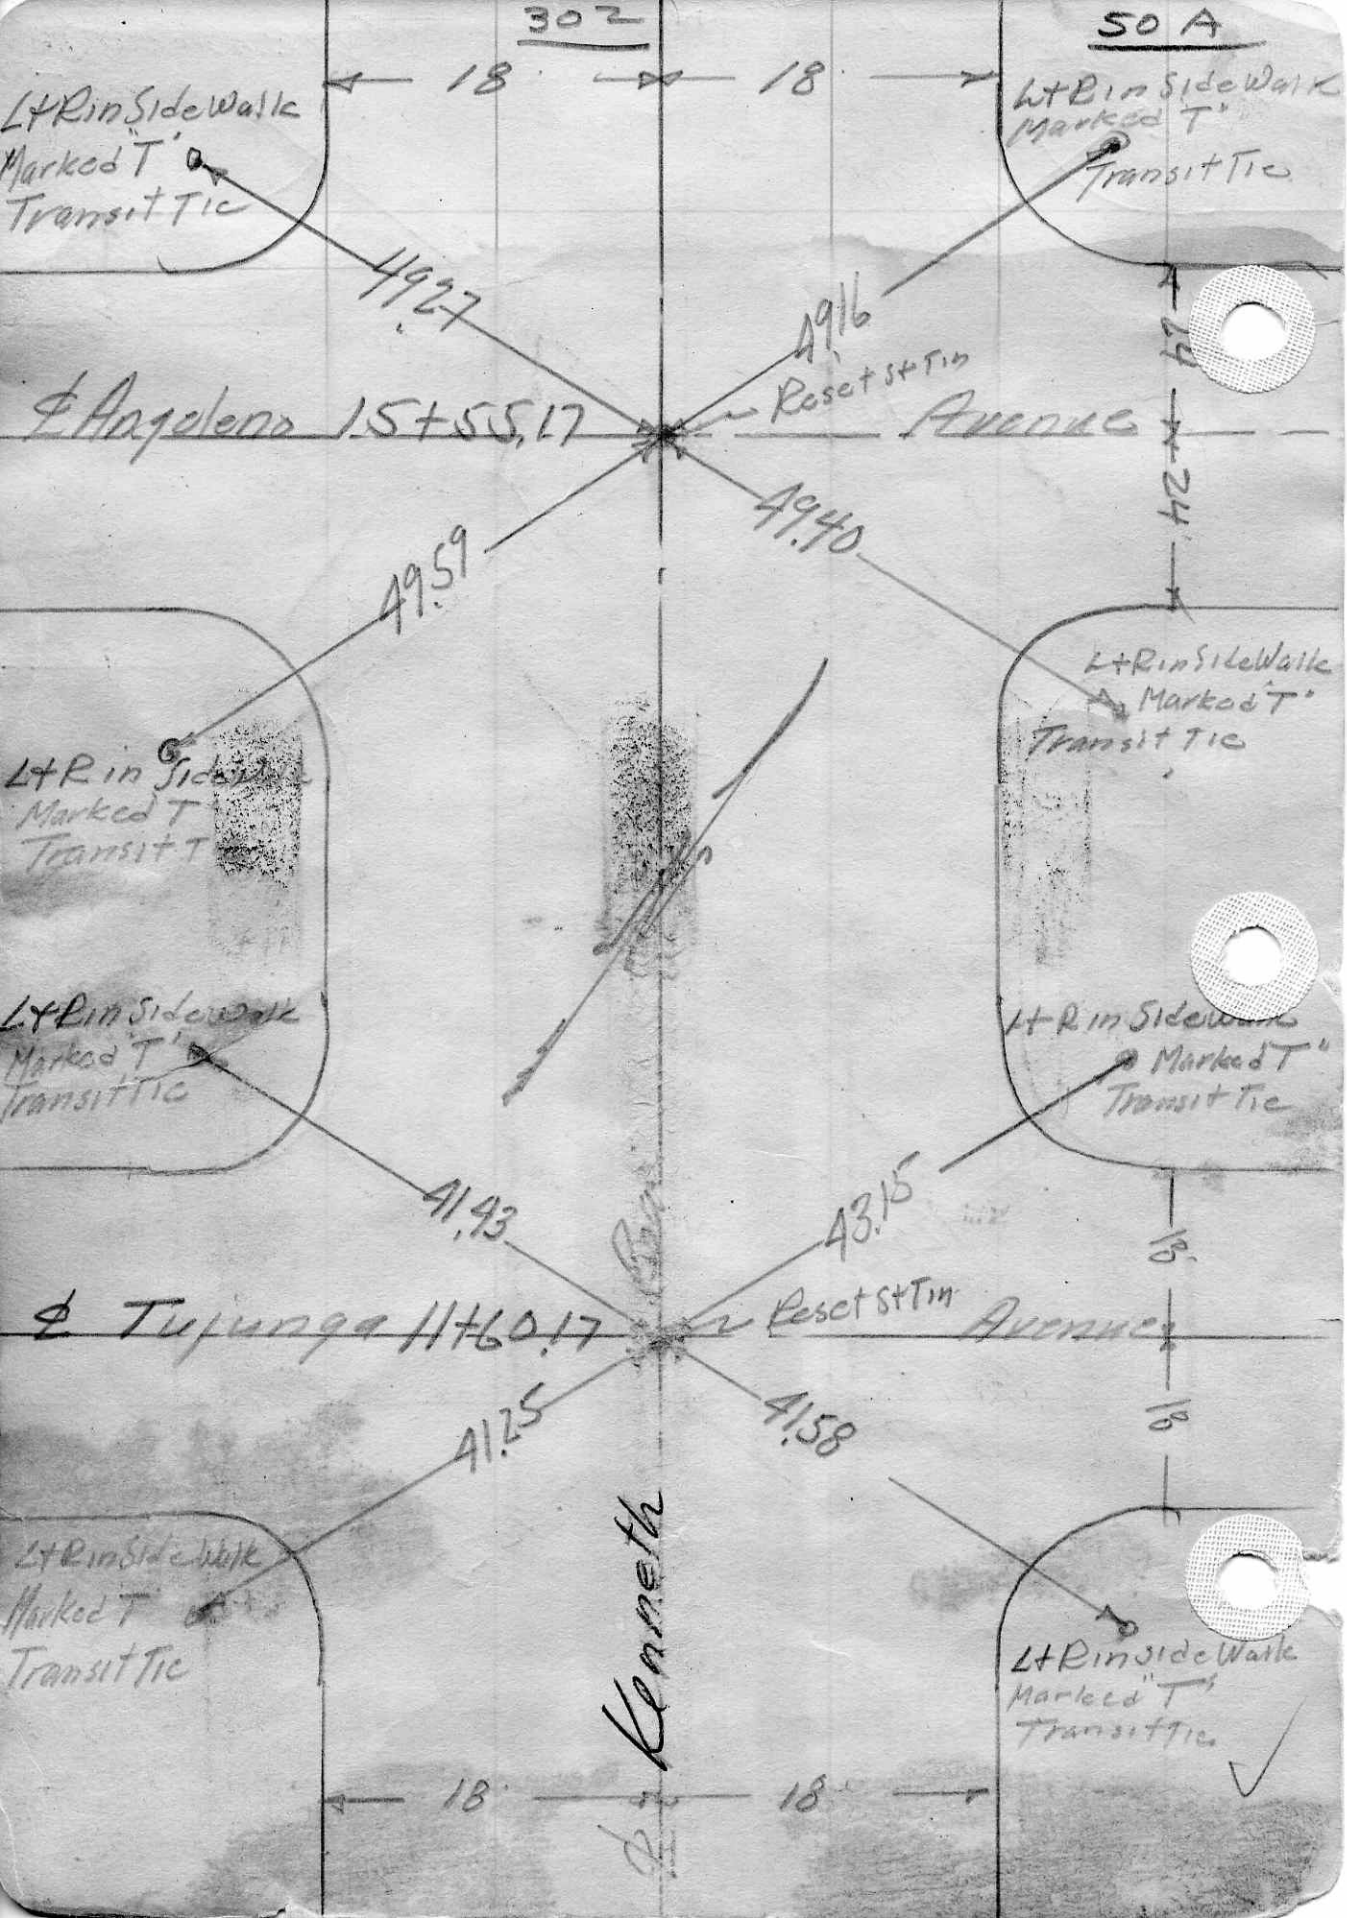 302
50 A
18
18
L+R in SideWalk
Marked "T"
Transit Tie
L+R in SideWalk
Marked "T"
Transit Tie
49.27
49.16
Reset St Tin
24
℄ Angeleno 15+55.17 Avenue
24
49.59
49.40
L+R in SideWalk
Marked "T"
Transit Tie
L+R in SideWalk
Marked T
Transit T
L+R in Sidewalk
Marked "T"
Transit Tie
L+R in Sidewalk
Marked "T"
Transit Tie
41.93
43.15
18
Reset St Tin
℄ Tujunga 11+60.17 Avenue
18
41.25
41.58
L+R in SideWalk
Marked T
Transit Tie
L+R in Side Walk
Marked "T"
Transit Tie
℄ Kenneth
18
18